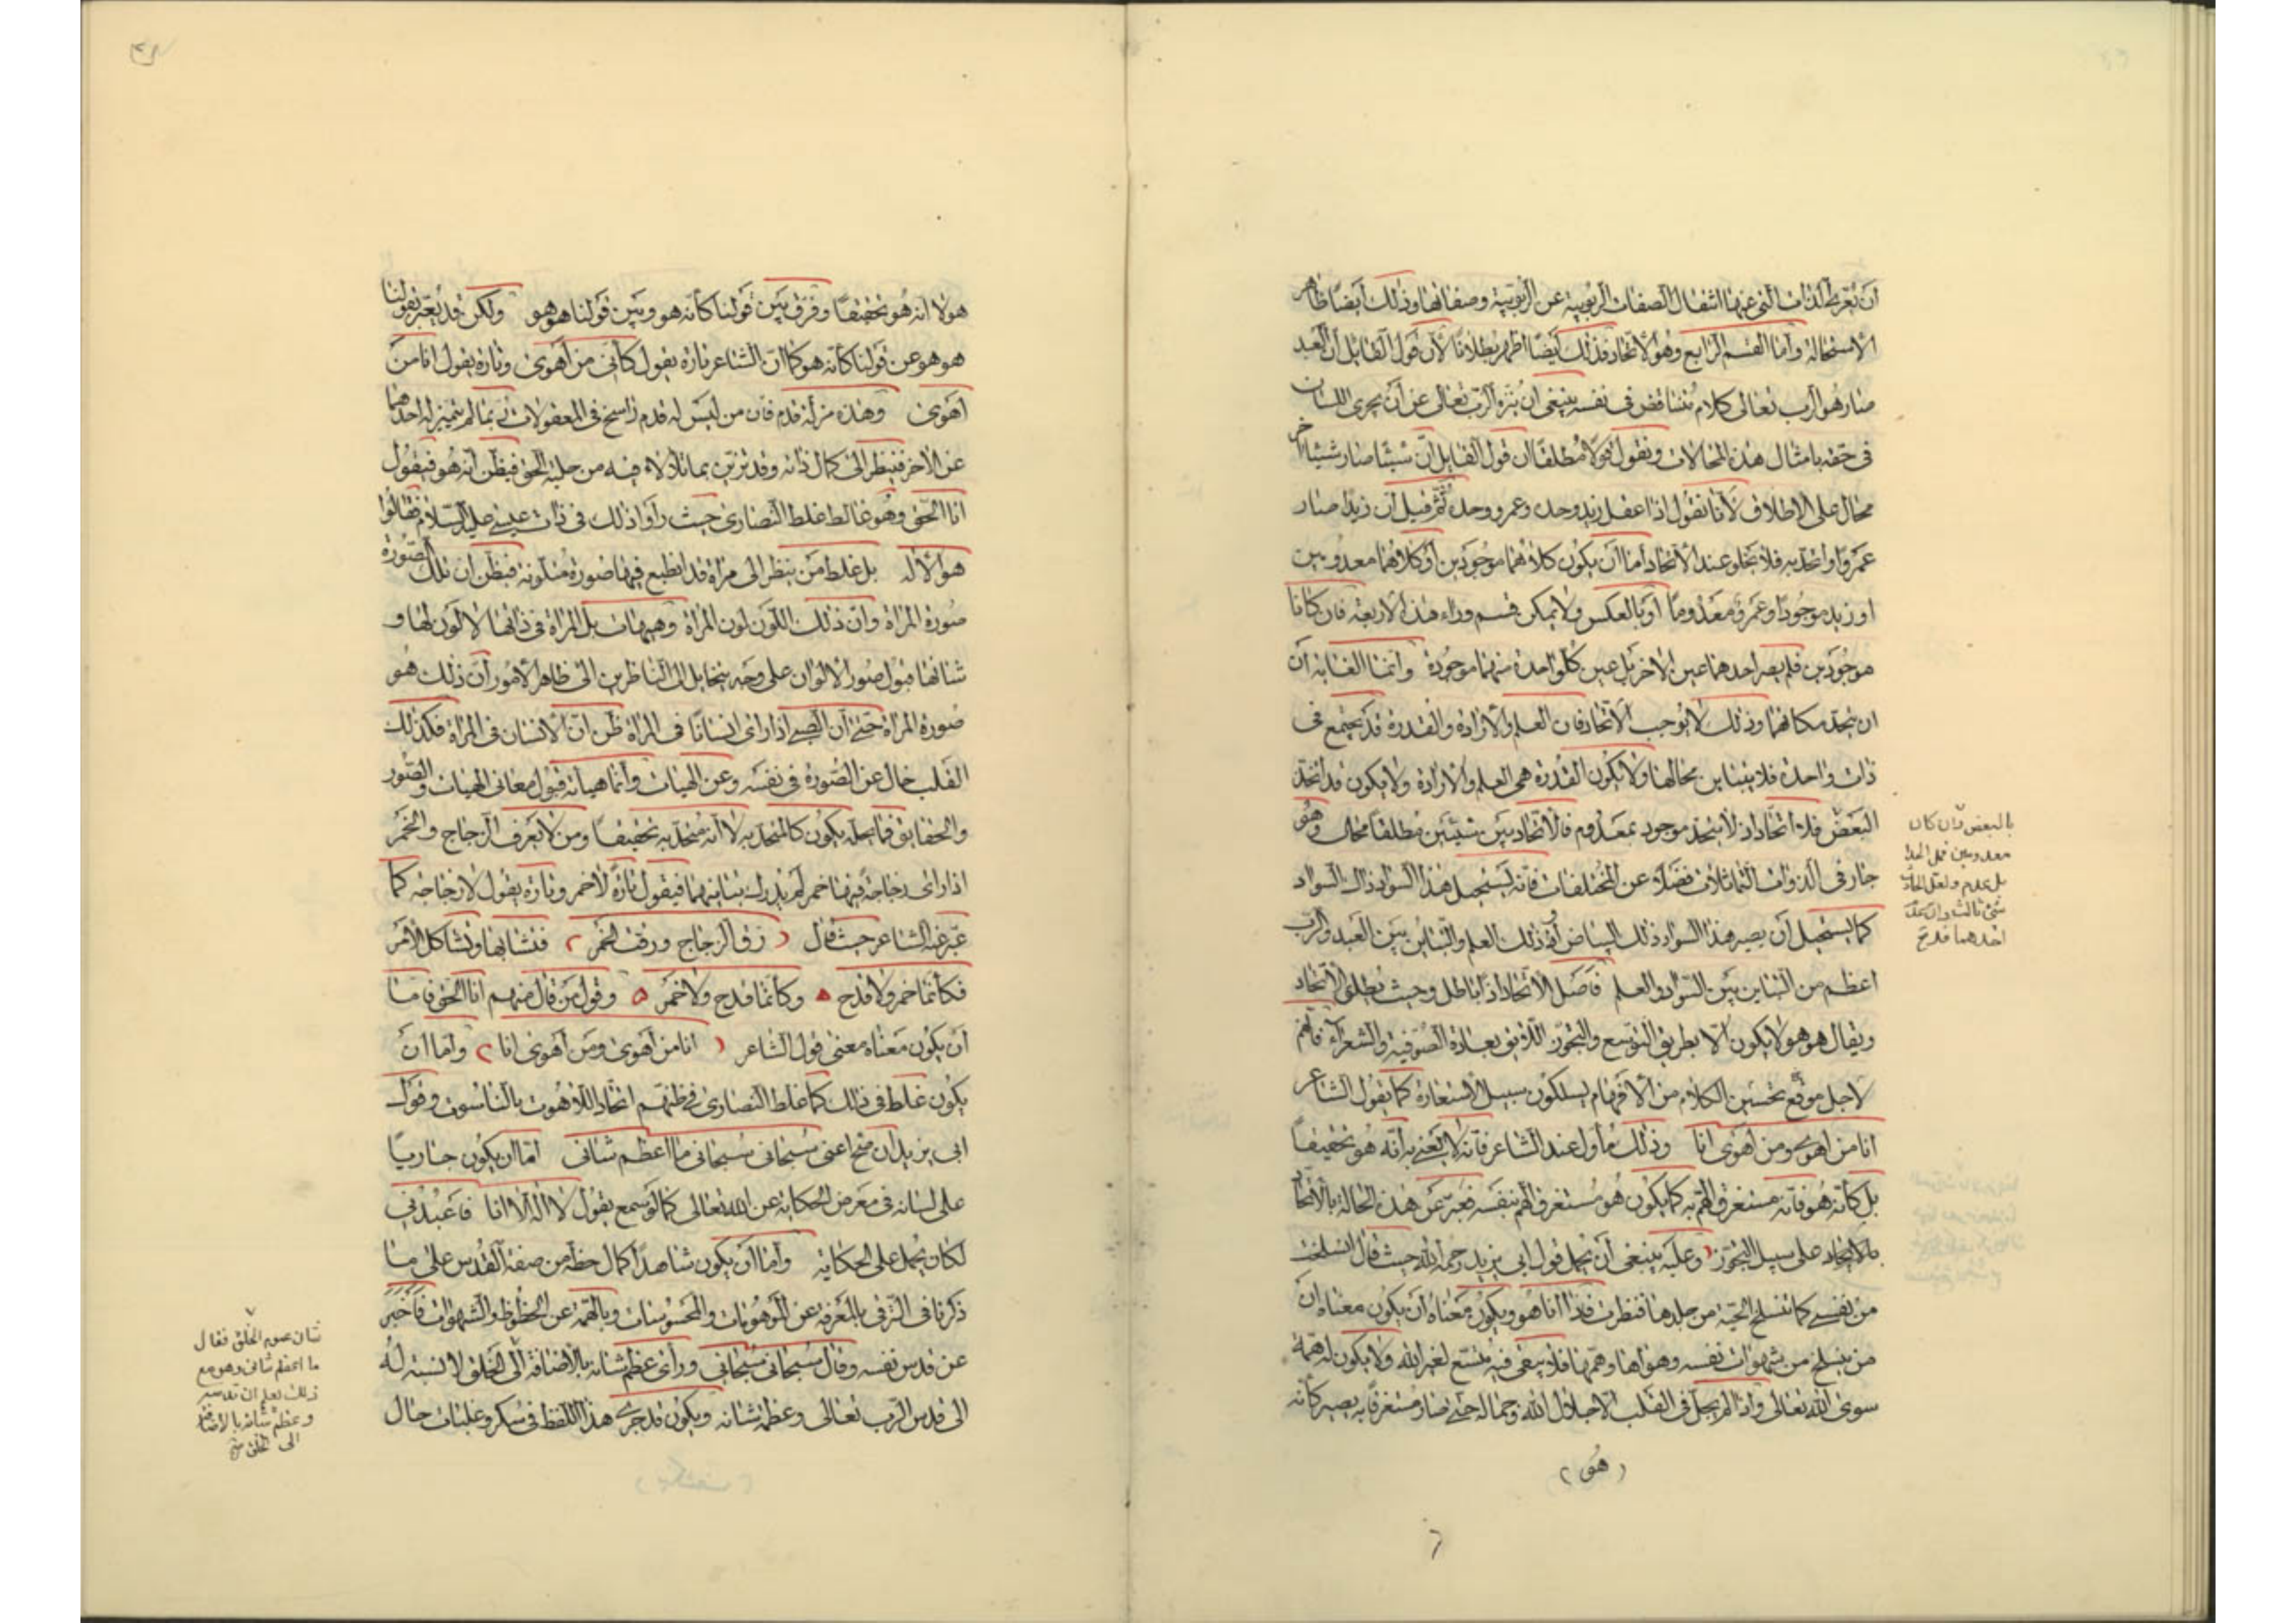 أن تعرى الذات التي عنها انتقال الصفات الربوبية عن الربوبية وصفاتها وذلك أيضا ظاهر
الاستحالة وأما القسم الرابع وهو الاتحاد فذلك أيضا أظهر بطلانا لأن قول القايل أن العبد
صار هو الرب تعالى كلام متناقض في نفسه ينبغي أن ينزه الرب تعالى عن أن يجرى اللسان
في حقه بامثال هذه المحالات ونقول قولا مطلقا ان قول القايل أن شيئا صار شيئا آخر
محال على الاطلاق لأنا نقول اذا عقل زيد وحده وعمرو وحده ثم قيل أن زيدا صار
عمروا واتحد به فلا يخلو عند الاتحاد أما أن يكون كلاهما موجودين أو كلاهما معدومين
او زيد موجودا وعمرو معدوما أو بالعكس ولا يمكن قسم وراء هذه الاربعة فان كانا
موجودين فلم يصر احدهما عين الاخر بل عين كل واحدة منهما موجودة وانما الغاية أن
ان يتحد مكانهما وذلك لا يوجب الاتحاد فان العلم والارادة والقدرة قد يجتمع في
ذات واحدة فلا يتباين محالها ولا يكون القدرة هي العلم والارادة ولا يكون قد اتحد
البعض فلا اتحاد اذ لا يتحد موجود بمعدوم فالاتحاد بين شيئين مطلقا محال وهو
جار في الذوات المتماثلات فضلا عن المختلفات فانه يستحيل هذا السواد ذاك السواد
كما يستحيل أن يصير هذا السواد ذلك البياض أو ذلك العلم والتباين بين العبد والرب
اعظم من التباين بين السواد والعلم فاصل الاتحاد اذا باطل وحيث يطلق الاتحاد
ويقال هو هو لا يكون الا بطريق التوسع والتجوز اللايق بعادة الصوفية والشعراء فانهم
لاجل موقع تحسين الكلام من الافهام يسلكون سبيل الاستعارة كما يقول الشاعر
انا من اهوى ومن اهوى انا وذلك مأول عند الشاعر فانه لا يعني به أنه هو تحقيقا
بل كأنه هو فانه مستغرق الهم به كما يكون هو مستغرق الهم بنفسه فعبر عن هذه الحالة بالاتحاد
بالاتحاد على سبيل التجوز وعليه ينبغي أن يحمل قول ابي يزيد رحمه الله حيث قال انسلخت
من نفسي كما تنسلخ الحية من جلدها فنظرت فاذا أنا هو ويكون معناه أن يكون معناه ان
من ينسلخ من شهوات نفسه وهواها وهمها فلا يبقى فيه متسع لغير الله ولا يكون له همة
سوى الله تعالى واذا لم يحل في القلب الا جلال الله وجماله حتى صار مستغرقا به يصير كأنه
(هو)
بالبعض وان كان
معدومين فما اتحدا
بل عدم ولعل الحادث
شئ ثالث وان كان
احدهما
هو لا انه هو تحقيقا وفرق بين قولنا كأنه هو وبين قولنا هو هو ولكن قد يعبر بقولنا
هو هو عن قولنا كأنه هو كما ان الشاعر تارة يقول كأني من أهوى وتارة يقول انا من
أهوى وهذه مزلة قدم فان من ليس له قدم راسخ في المعقولات ربما لم يتميز له احدهما
عن الاخر فينظر الى كمال ذاته وقد تزين بما تلألأ فيه من حلية الحق فيظن أنه هو فيقول
انا الحق وهو غالط غلط النصارى حيث رأوا ذلك في ذات عيسى عليه السلام فقالوا
هو الاله بل غلط من ينظر الى مراة قد انطبع فيها صورة متلونة فيظن ان تلك الصورة
صورة المراة وان ذلك اللون لون المراة وهيهات بل المراة في ذاتها لا لون لها و
شانها قبول صور الالوان على وجه يتخايل الى الناظرين الى ظاهر الامور أن ذلك هو
صورة المراة حتى أن الصبي اذا راى انسانا في المراة ظن ان الانسان في المراة فكذلك
القلب خال عن الصورة في نفسه وعن الهيات وأنما هيأته قبول معاني الهيات والصور
والحقايق فما يحله يكون كالمتحد به لا أنه متحد به تحقيقا ومن لا يعرف الزجاج والخمر
اذا راى زجاجة فيها خمر لم يدرك تباينهما فيقول تارة لا خمر وتارة يقول لا زجاجة كما
عبر عنه الشاعر حيث قال ( رق الزجاج ورقت الخمر ) فتشابها وتشاكل الأمر
فكأنما خمر ولا قدح ه وكأنما قدح ولا خمر ه وقول من قال منهم انا الحق فاما
أن يكون معناه معنى قول الشاعر ( انا من أهوى ومن أهوى انا ) واما ان
يكون غلط في ذلك كما غلط النصارى في ظنهم اتحاد اللاهوت بالناسوت وقول
ابي يزيد ان صح اعني سبحانى سبحانى ما اعظم شانى اما ان يكون جاريا
على لسانه في معرض الحكاية عن الله تعالى كما لو سمع يقول لا اله الا انا فاعبدني
لكان يحمل على الحكاية وأما أن يكون شاهدا كمال حظه من صفة القدس على ما
ذكرنا في الترقي بالمعرفة عن الموهومات والمحسوسات وبالهمة عن الحظوظ والشهوات فأخبر
عن قدس نفسه وقال سبحانى سبحانى وراى عظم شانه بالاضافة الى الخلق لا نسبة له
الى قدس الرب تعالى وعظمة شانه ويكون قد جرى هذا اللفظ في سكر وغلبات حال
شان عموم الخلق فقال
ما اعظم شانى وهو مع
ذلك يعلم ان قدسه
وعظم شانه بالاضافة
الى الخلق